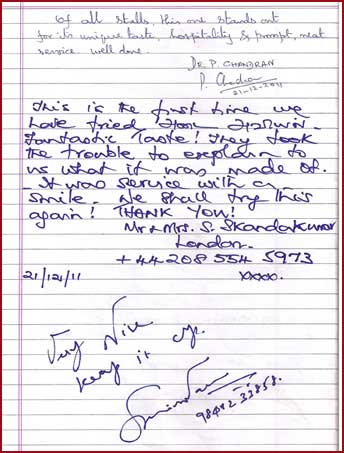 Of all stalls, this one stands out
for its unique taste, hospitality & prompt, neat
service. well done.
DR. P. CHANDRAN
P. Chandran
21-12-2011
This is the first time we
have tried
Fantastic Taste! They took
the trouble to explain to
us what it was made of.
- It was service with a
smile. We shall try this
again! THANK YOU!
Mr & Mrs. S. Skandakumar
London.
+44 208 554 5973
21/12/11 xxxx.
Very Nice
keep it up.
98412 33858.